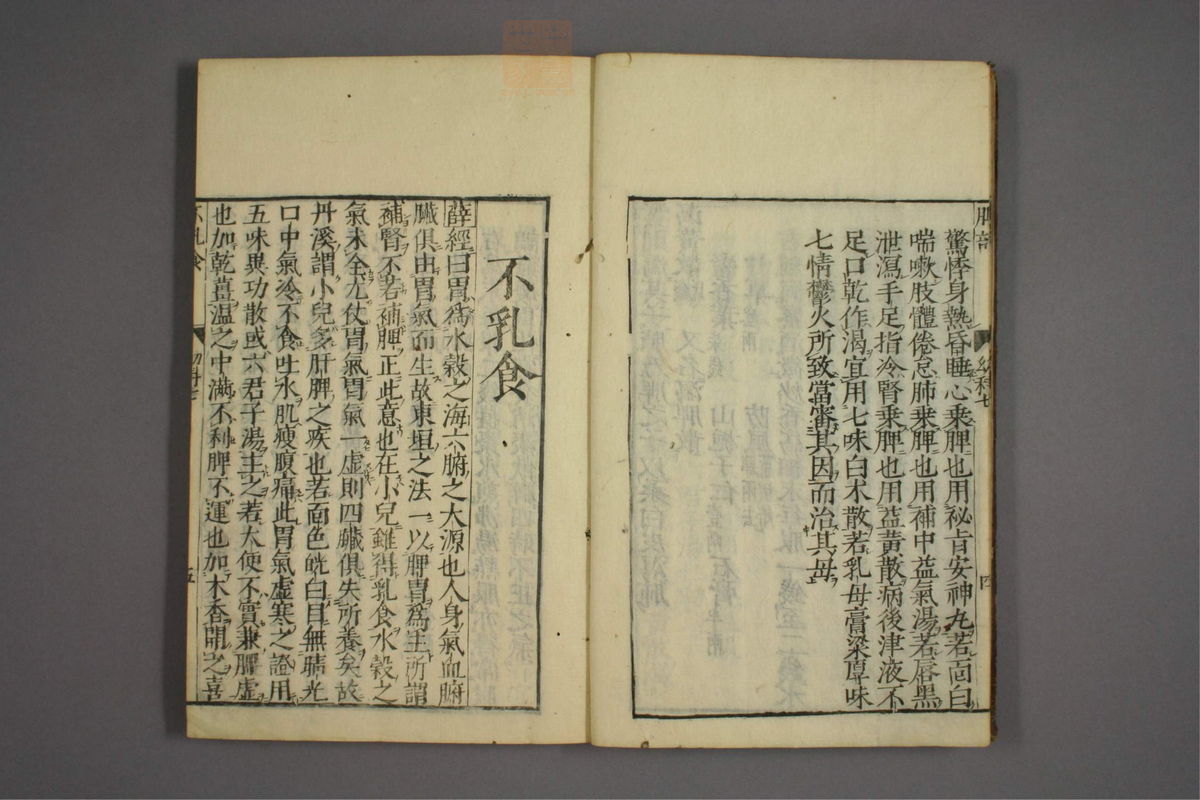 驚悸身熱昏睡心乘脾也用祕旨安神丸若面白
喘嗽肢體倦怠肺乘脾也用補中益氣湯若唇黑
泄瀉手足指冷腎乘脾也用益黃散病後津液不
足口乾作渴宜用七味白朮散若乳母膏粱厚味
七情鬱火所致當審其因而治其母
四
不乳食
薛經曰胃爲水穀之海六腑之大源也人身氣血腑
臟俱由胃氣而生故東垣之法一以脾胃爲主所謂
補腎不若補脾正此意也在小兒雖得乳食水穀之
氣未全尤仗胃氣胃氣一虛則四臟俱失所養矣故
丹溪謂小兒多肝脾之疾也若面色㿠白目無睛光
口中氣冷不食吐水肌瘦腹痛此胃氣虛寒之證用
五味異功散或六君子湯主之若大便不實兼脾虛
也加乾薑溫之中滿不利脾不運也加木香開之喜
五